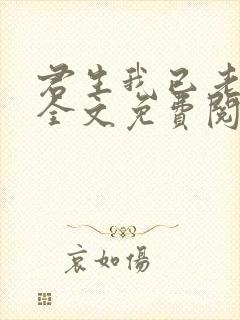 君生我已老
全文免費閱
哀如傷